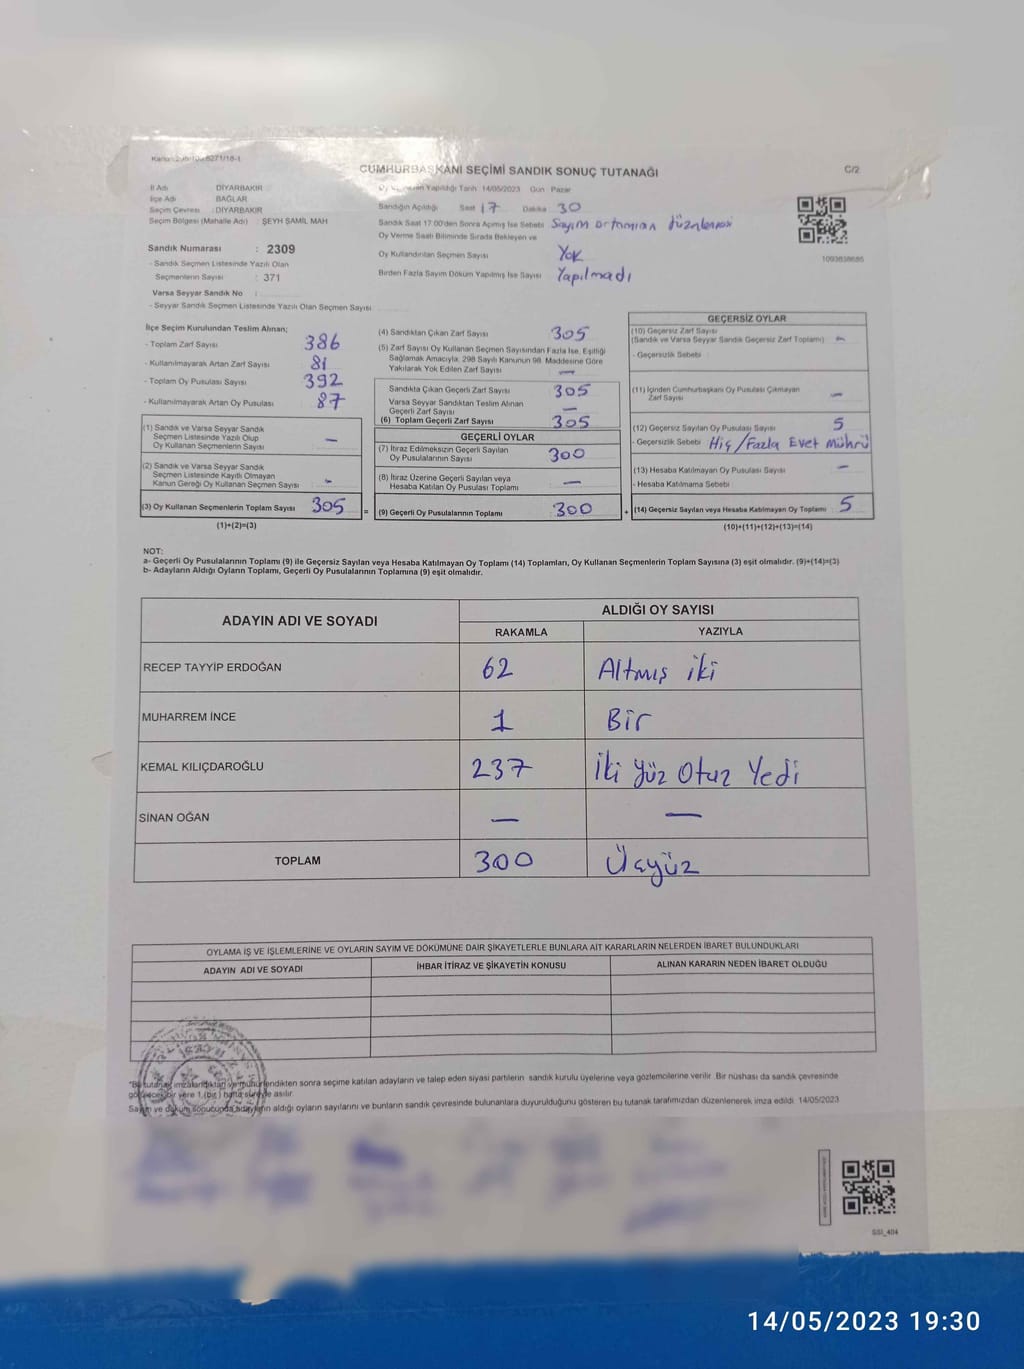 CUMHURBAŞKANI SEÇİMİ SANDIK SONUÇ TUTANAĞI
C/2
İl Adı : DİYARBAKIR
İlçe Adı : BAĞLAR
Seçim Çevresi : DİYARBAKIR
Seçim Bölgesi (Mahalle Adı) : ŞEYH ŞAMİL MAH
Sandık Numarası : 2309
- Sandık Seçmen Listesinde Yazılı Olan
Seçmenlerin Sayısı : 371
Varsa Seyyar Sandık No :
- Seyyar Sandık Seçmen Listesinde Yazılı Olan Seçmen Sayısı
Yapıldığı Tarih 14/05/2023 Gün Pazar
Sandığın Açıldığı Saat 17 Dakika 30
Sandık Saat 17:00'den Sonra Açılmış İse Sebebi Sayım ortamının düzenlenmesi
Oy Verme Saati Bitiminde Sırada Bekleyen ve
Oy Kullandırılan Seçmen Sayısı Yok
Birden Fazla Sayım Döküm Yapılmış İse Sayısı Yapılmadı
1093838685
İlçe Seçim Kurulundan Teslim Alınan;
- Toplam Zarf Sayısı 386
- Kullanılmayarak Artan Zarf Sayısı 81
- Toplam Oy Pusulası Sayısı 392
- Kullanılmayarak Artan Oy Pusulası 87
(1) Sandık ve Varsa Seyyar Sandık
Seçmen Listesinde Yazılı Olup
Oy Kullanan Seçmenlerin Sayısı —
(2) Sandık ve Varsa Seyyar Sandık
Seçmen Listesinde Kayıtlı Olmayan
Kanun Gereği Oy Kullanan Seçmen Sayısı -
(3) Oy Kullanan Seçmenlerin Toplam Sayısı 305
(1)+(2)=(3)
(4) Sandıktan Çıkan Zarf Sayısı 305
(5) Zarf Sayısı Oy Kullanan Seçmen Sayısından Fazla İse, Eşitliği
Sağlamak Amacıyla; 298 Sayılı Kanunun 98. Maddesine Göre
Yakılarak Yok Edilen Zarf Sayısı —
Sandıkta Çıkan Geçerli Zarf Sayısı 305
Varsa Seyyar Sandıktan Teslim Alınan
Geçerli Zarf Sayısı —
(6) Toplam Geçerli Zarf Sayısı 305
GEÇERLİ OYLAR
(7) İtiraz Edilmeksizin Geçerli Sayılan
Oy Pusulalarının Sayısı 300
(8) İtiraz Üzerine Geçerli Sayılan veya
Hesaba Katılan Oy Pusulası Toplamı —
= (9) Geçerli Oy Pusulalarının Toplamı 300
GEÇERSİZ OYLAR
(10) Geçersiz Zarf Sayısı
(Sandık ve Varsa Seyyar Sandık Geçersiz Zarf Toplamı) -
- Geçersizlik Sebebi :
(11) İçinden Cumhurbaşkanı Oy Pusulası Çıkmayan
Zarf Sayısı —
(12) Geçersiz Sayılan Oy Pusulası Sayısı 5
- Geçersizlik Sebebi Hiç/Fazla Evet Mührü
(13) Hesaba Katılmayan Oy Pusulası Sayısı —
- Hesaba Katılmama Sebebi
+ (14) Geçersiz Sayılan veya Hesaba Katılmayan Oy Toplamı 5
(10)+(11)+(12)+(13)=(14)
NOT:
a- Geçerli Oy Pusulalarının Toplamı (9) ile Geçersiz Sayılan veya Hesaba Katılmayan Oy Toplamı (14) Toplamları, Oy Kullanan Seçmenlerin Toplam Sayısına (3) eşit olmalıdır. (9)+(14)=(3)
b- Adayların Aldığı Oyların Toplamı, Geçerli Oy Pusulalarının Toplamına (9) eşit olmalıdır.
ADAYIN ADI VE SOYADI
ALDIĞI OY SAYISI
RAKAMLA YAZIYLA
RECEP TAYYİP ERDOĞAN 62 Altmış iki
MUHARREM İNCE 1 Bir
KEMAL KILIÇDAROĞLU 237 İki yüz Otuz Yedi
SİNAN OĞAN — —
TOPLAM 300 Üçyüz
OYLAMA İŞ VE İŞLEMLERİNE VE OYLARIN SAYIM VE DÖKÜMÜNE DAİR ŞİKAYETLERLE BUNLARA AİT KARARLARIN NELERDEN İBARET BULUNDUKLARI
ADAYIN ADI VE SOYADI İHBAR İTİRAZ VE ŞİKAYETİN KONUSU ALINAN KARARIN NEDEN İBARET OLDUĞU
*Bu tutanak imzalandıktan ve mühürlendikten sonra seçime katılan adayların ve talep eden siyasi partilerin sandık kurulu üyelerine veya gözlemcilerine verilir. Bir nüshası da sandık çevresinde
görülecek bir yere 1 (bir) hafta süreyle asılır.
Sayım ve döküm sonucunda adayların aldığı oyların sayılarını ve bunların sandık çevresinde bulunanlara duyurulduğunu gösteren bu tutanak tarafımızdan düzenlenerek imza edildi. 14/05/2023
GSI_404
14/05/2023 19:30